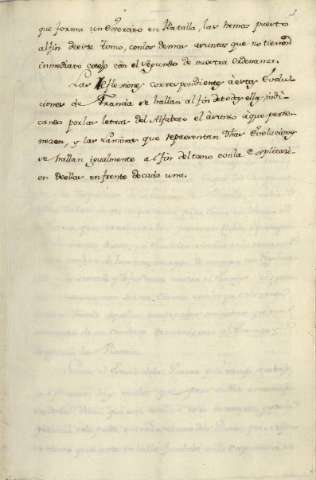 que forma un Exercito en Batalla, las hemos puesto
al fin de este tomo, con los demas asuntos que no tienen
inmediato cotejo con el segundo de nuestra ordenanza.
Las Reflexiones correspondientes à estas Evolu-
ciones de Francia se hallan al fin de todas ellas, indi-
cando por las letras del Alfabeto el asunto à que perte-
necen, y las Laminas que representan dhas Evoluciones
se hallan igualmente al fin del tomo con la Explicaci-
on de ellas en frente de cada una.